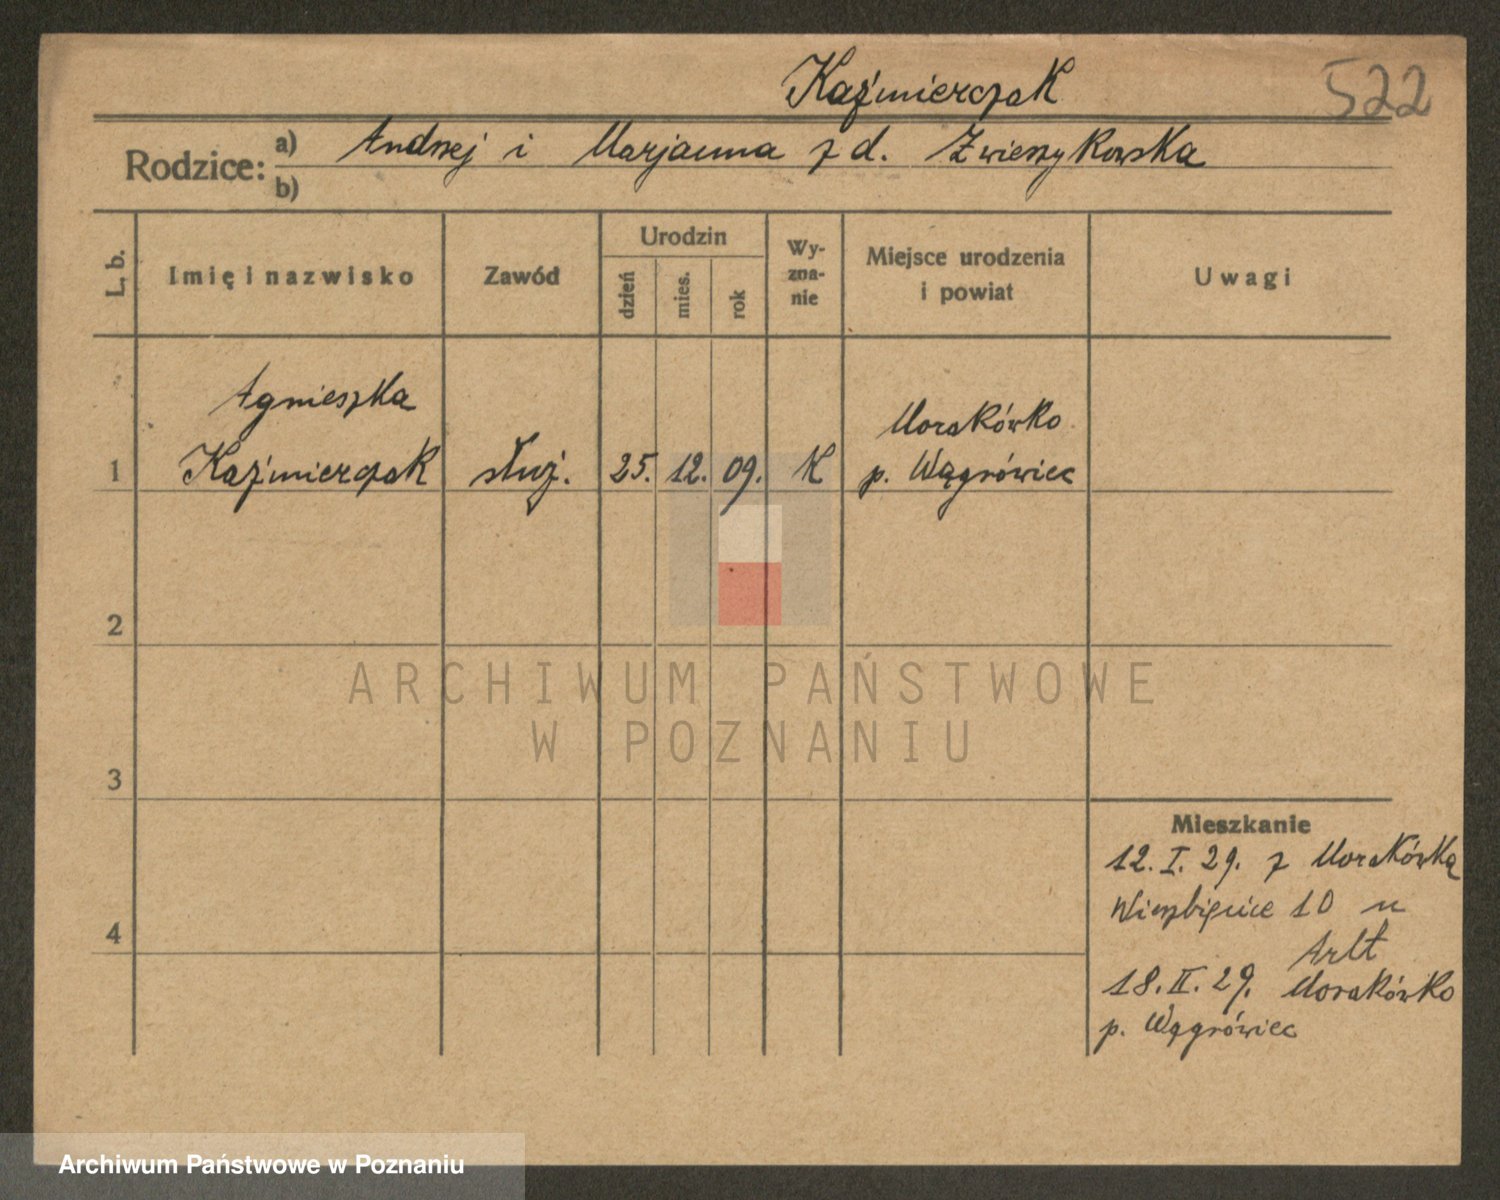 Kaźmierczak
522
Rodzice:
a) Andrzej i Marjanna z d. Zwierzykowska
b)
L. b.
Imię i nazwisko
Zawód
Urodzin
dzień
mies.
rok
Wy-
zna-
nie
Miejsce urodzenia
i powiat
Uwagi
Agnieszka
Morakówko
1 Kaźmierczak służ. 25. 12. 09. K p. Wągrówiec
2
3
4
Mieszkanie
12. I. 29. z Morakówka
Wierzbięcice 10 u
Arlt
18. II. 29. Morakówko
p. Wągrówiec
ARCHIWUM PAŃSTWOWE
W POZNANIU
Archiwum Państwowe w Poznaniu